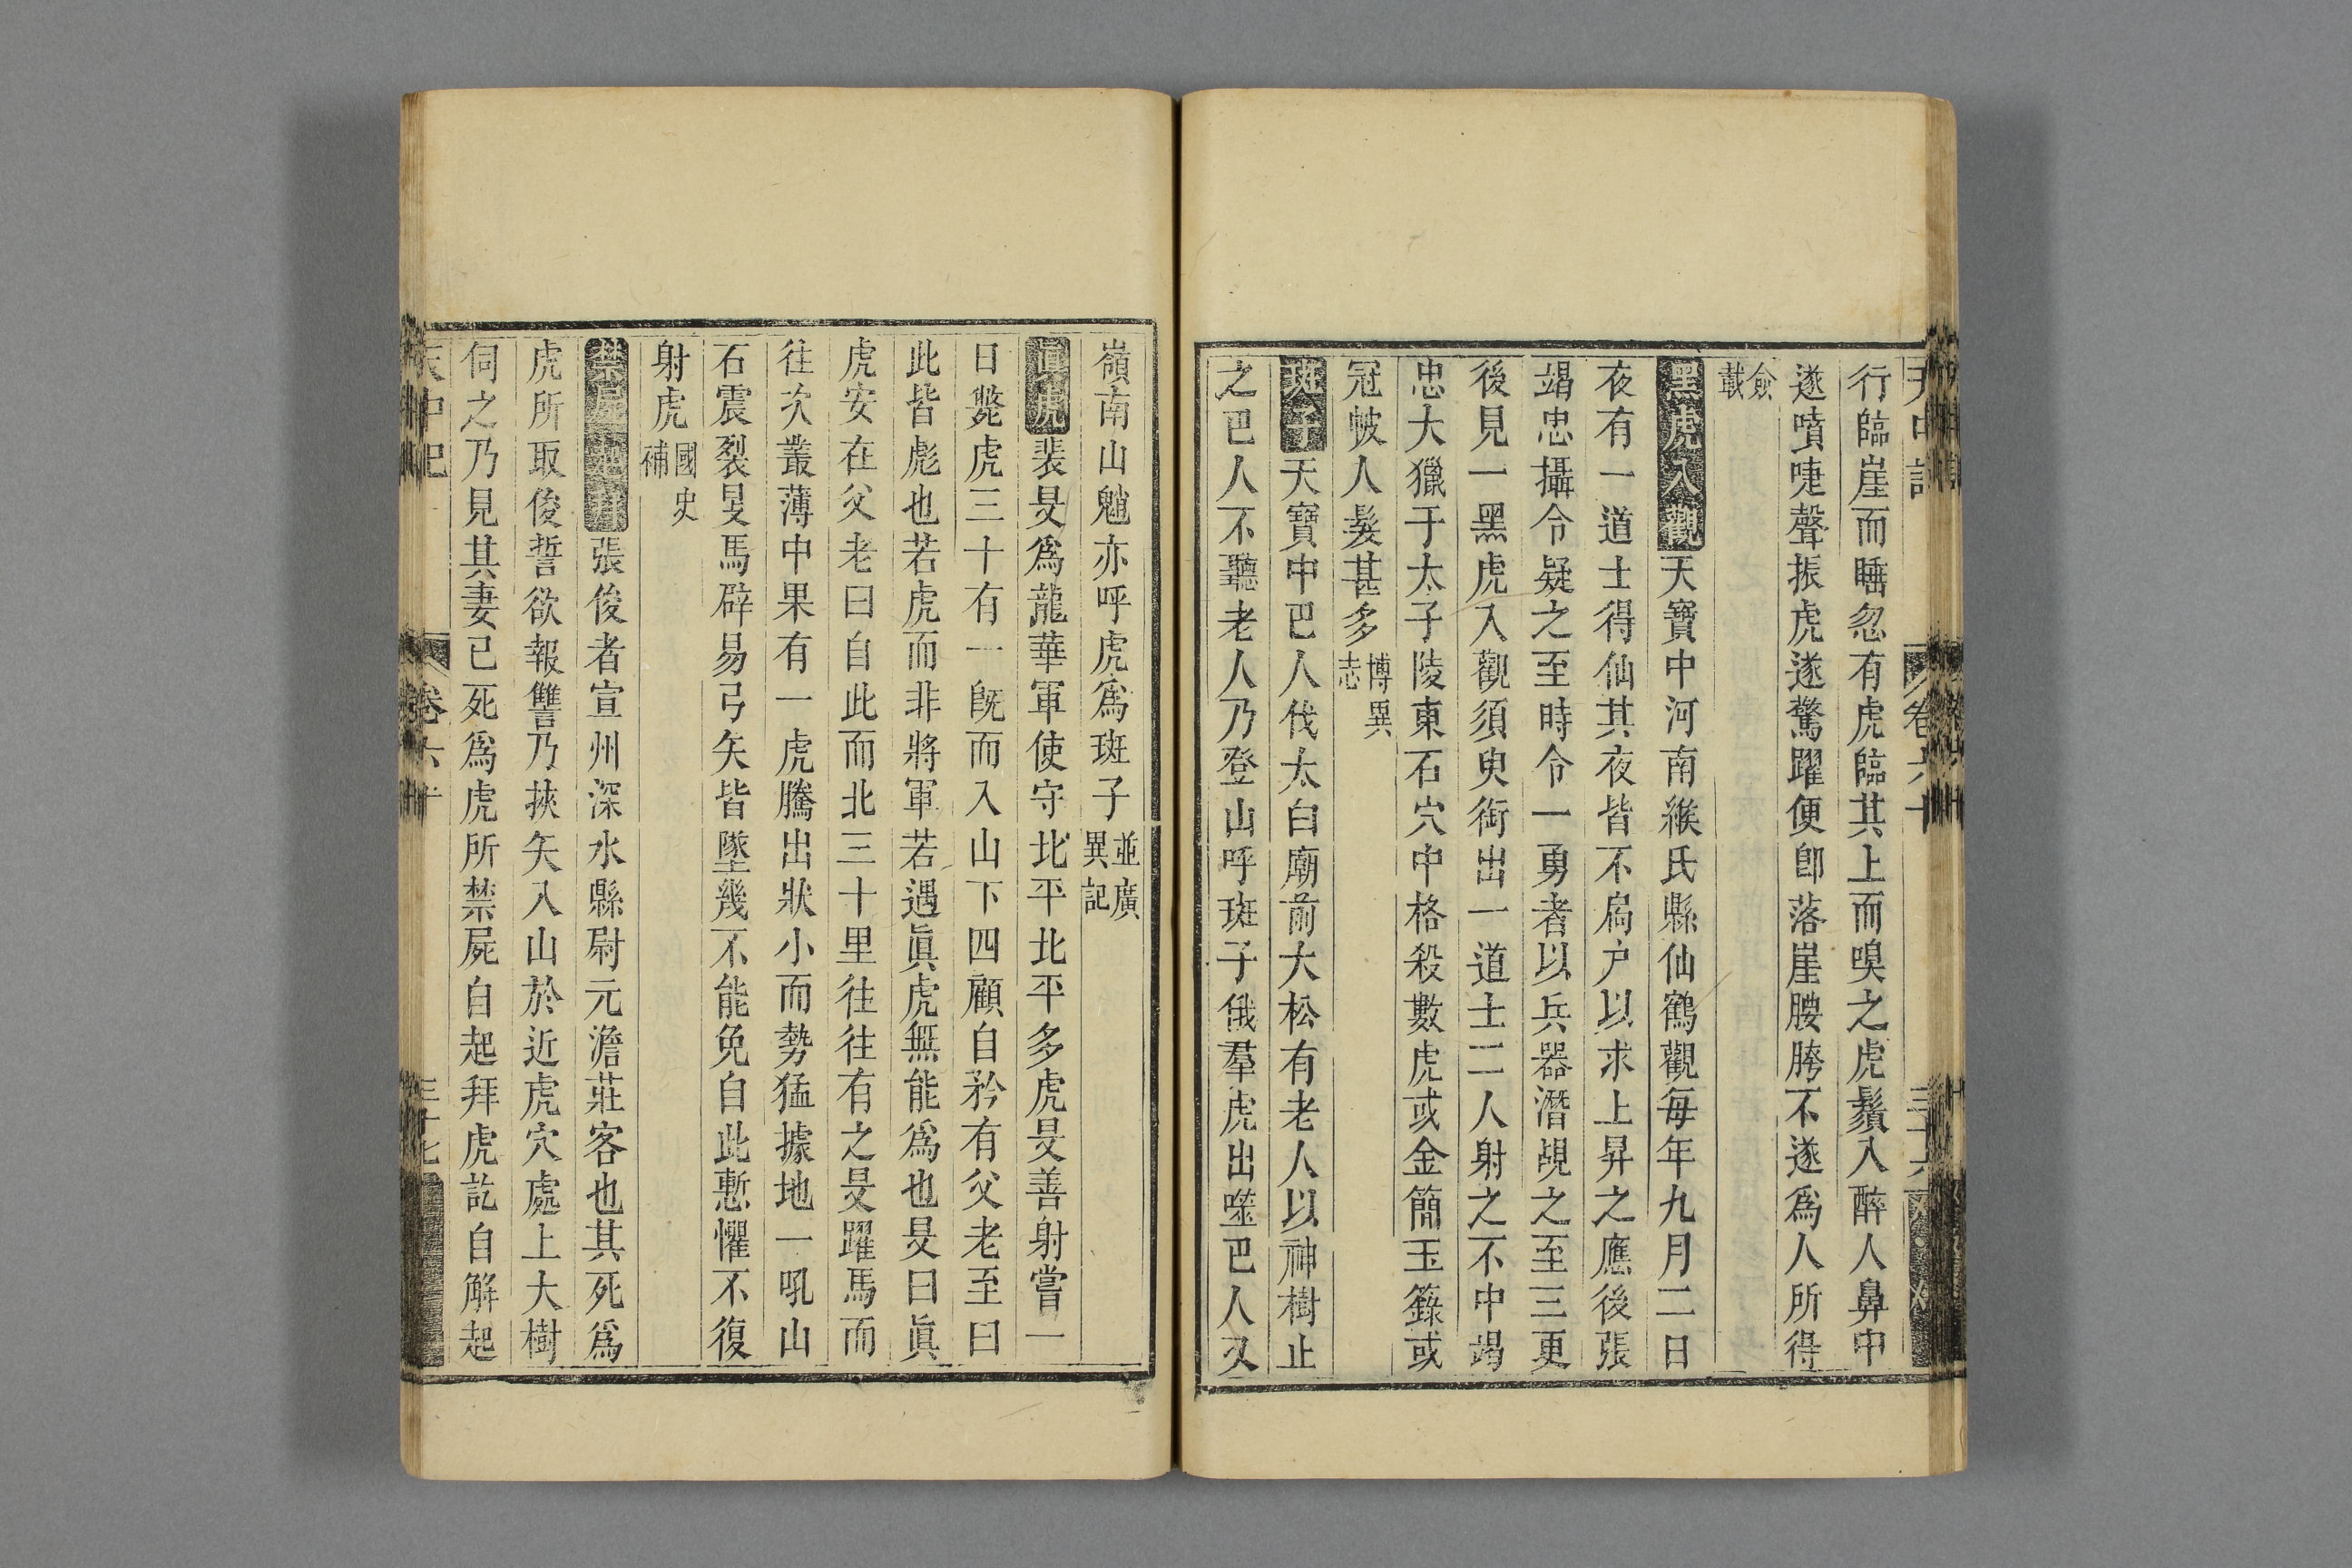 天中記
卷六十
三十六
行臨崖而睡忽有虎臨其上而嗅之虎鬚入醉人鼻中
遂噴嚏聲振虎遂驚躍便卽落崖腰胯不遂爲人所得
僉載
黑虎入觀天寶中河南緱氏縣仙鶴觀每年九月二日
夜有一道士得仙其夜皆不扃戶以求上昇之應後張
竭忠攝令疑之至時令一勇者以兵器潛覘之至三更
後見一黑虎入觀須臾銜出一道士二人射之不中竭
忠大獵于太子陵東石穴中格殺數虎或金簡玉籙或
冠帔人髮甚多博異志
斑子天寶中巴人伐太白廟前大松有老人以神樹止
之巴人不聽老人乃登山呼斑子俄羣虎出噬巴人又
嶺南山魈亦呼虎爲斑子並廣異記
眞虎裴旻爲龍華軍使守北平北平多虎旻善射嘗一
日斃虎三十有一旣而入山下四顧自矜有父老至曰
此皆彪也若虎而非將軍若遇眞虎無能爲也旻曰眞
虎安在父老曰自此而北三十里往往有之旻躍馬而
往次叢薄中果有一虎騰出狀小而勢猛據地一吼山
石震裂旻馬辟易弓矢皆墜幾不能免自此慙懼不復
射虎國史補
禁屍起拜張俊者宣州深水縣尉元澹莊客也其死爲
虎所取俊誓欲報讐乃挾矢入山於近虎穴處上大樹
伺之乃見其妻已死爲虎所禁屍自起拜虎訖自解起
天中記
卷六十
三十七